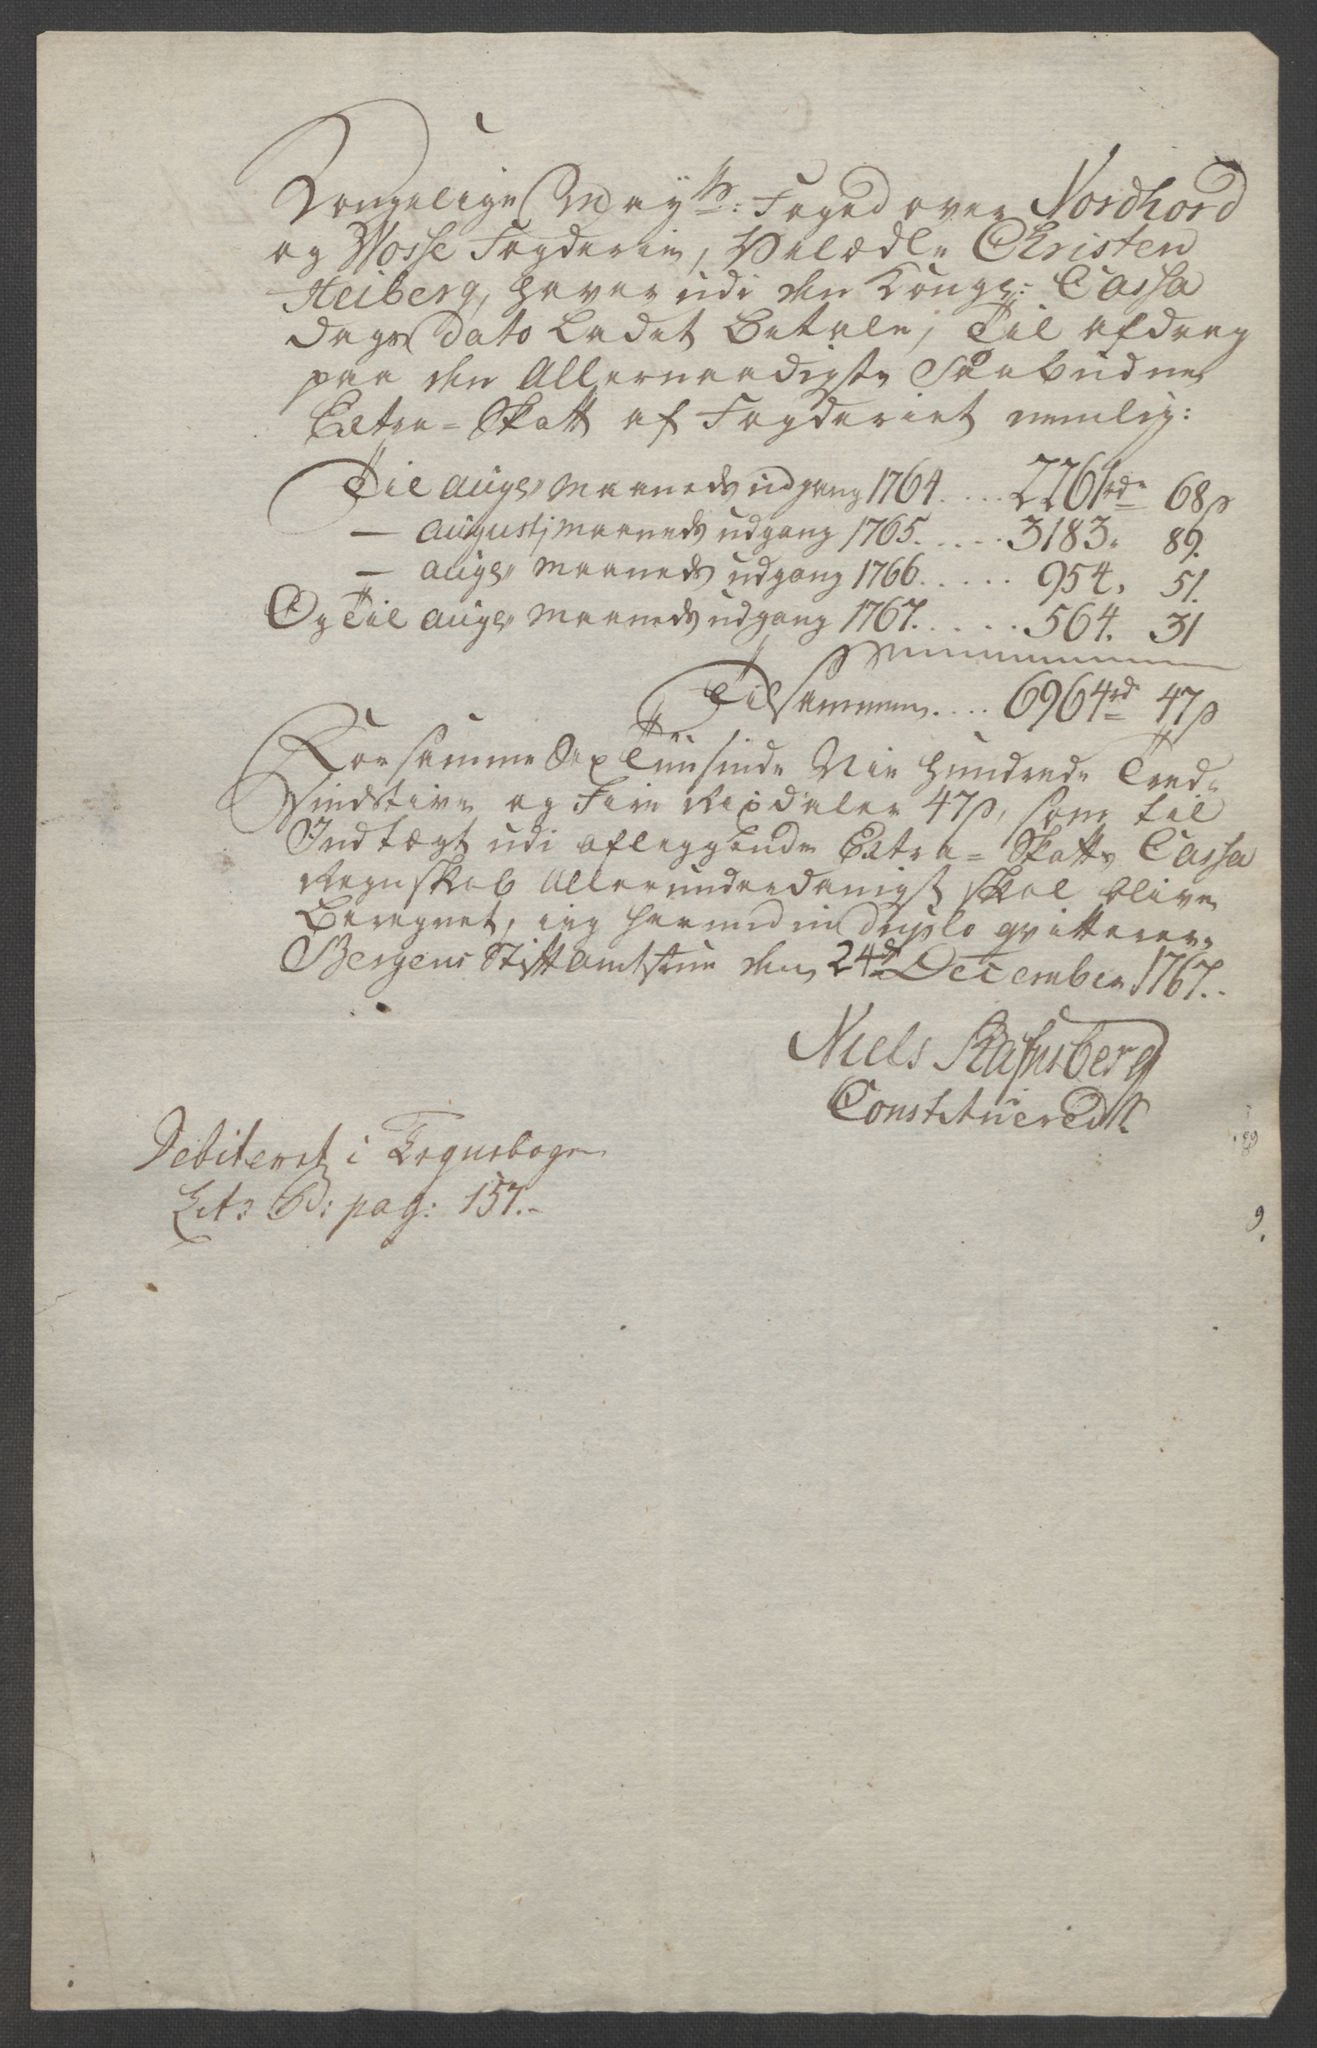 Kongelige Mayts: Foged over Nordhord
og Vosse Fogderie, Velædle Christen
Heiberg, haver udi den Kongl: Cassa
Dags Dato Ladet Betale, Til afdrag
paa den Allernaadigste Paabudne
Extra=Skatt af Fogderiet nemlig:
Til augs. maaneds udgang 1764 .... 2261rdr 68s
— augustj maaneds udgang 1765 ..... 3183. 89.
— augs. maaneds udgang 1766 ..... 954. 51.
Og Til augs. maaneds udgang 1767 ..... 564. 31
Tilsammen .... 6964rd 47s
For samme Sex Tuusinde Nie hundrede Tred¬
sindstive og Fire Rixdaler 47s, som til
Indtægt udi aflæggende Extra=Skatts Cassa
Regnskab Allerunderdanigst skal blive
Beregnet, ieg hermed in duplo qvitterer.
Bergens Stiftamtstue den 24de December 1767.
Niels Rafnsberg
Constitueredt
Debiteret i Tegnebogen
Litr B: pag: 157.